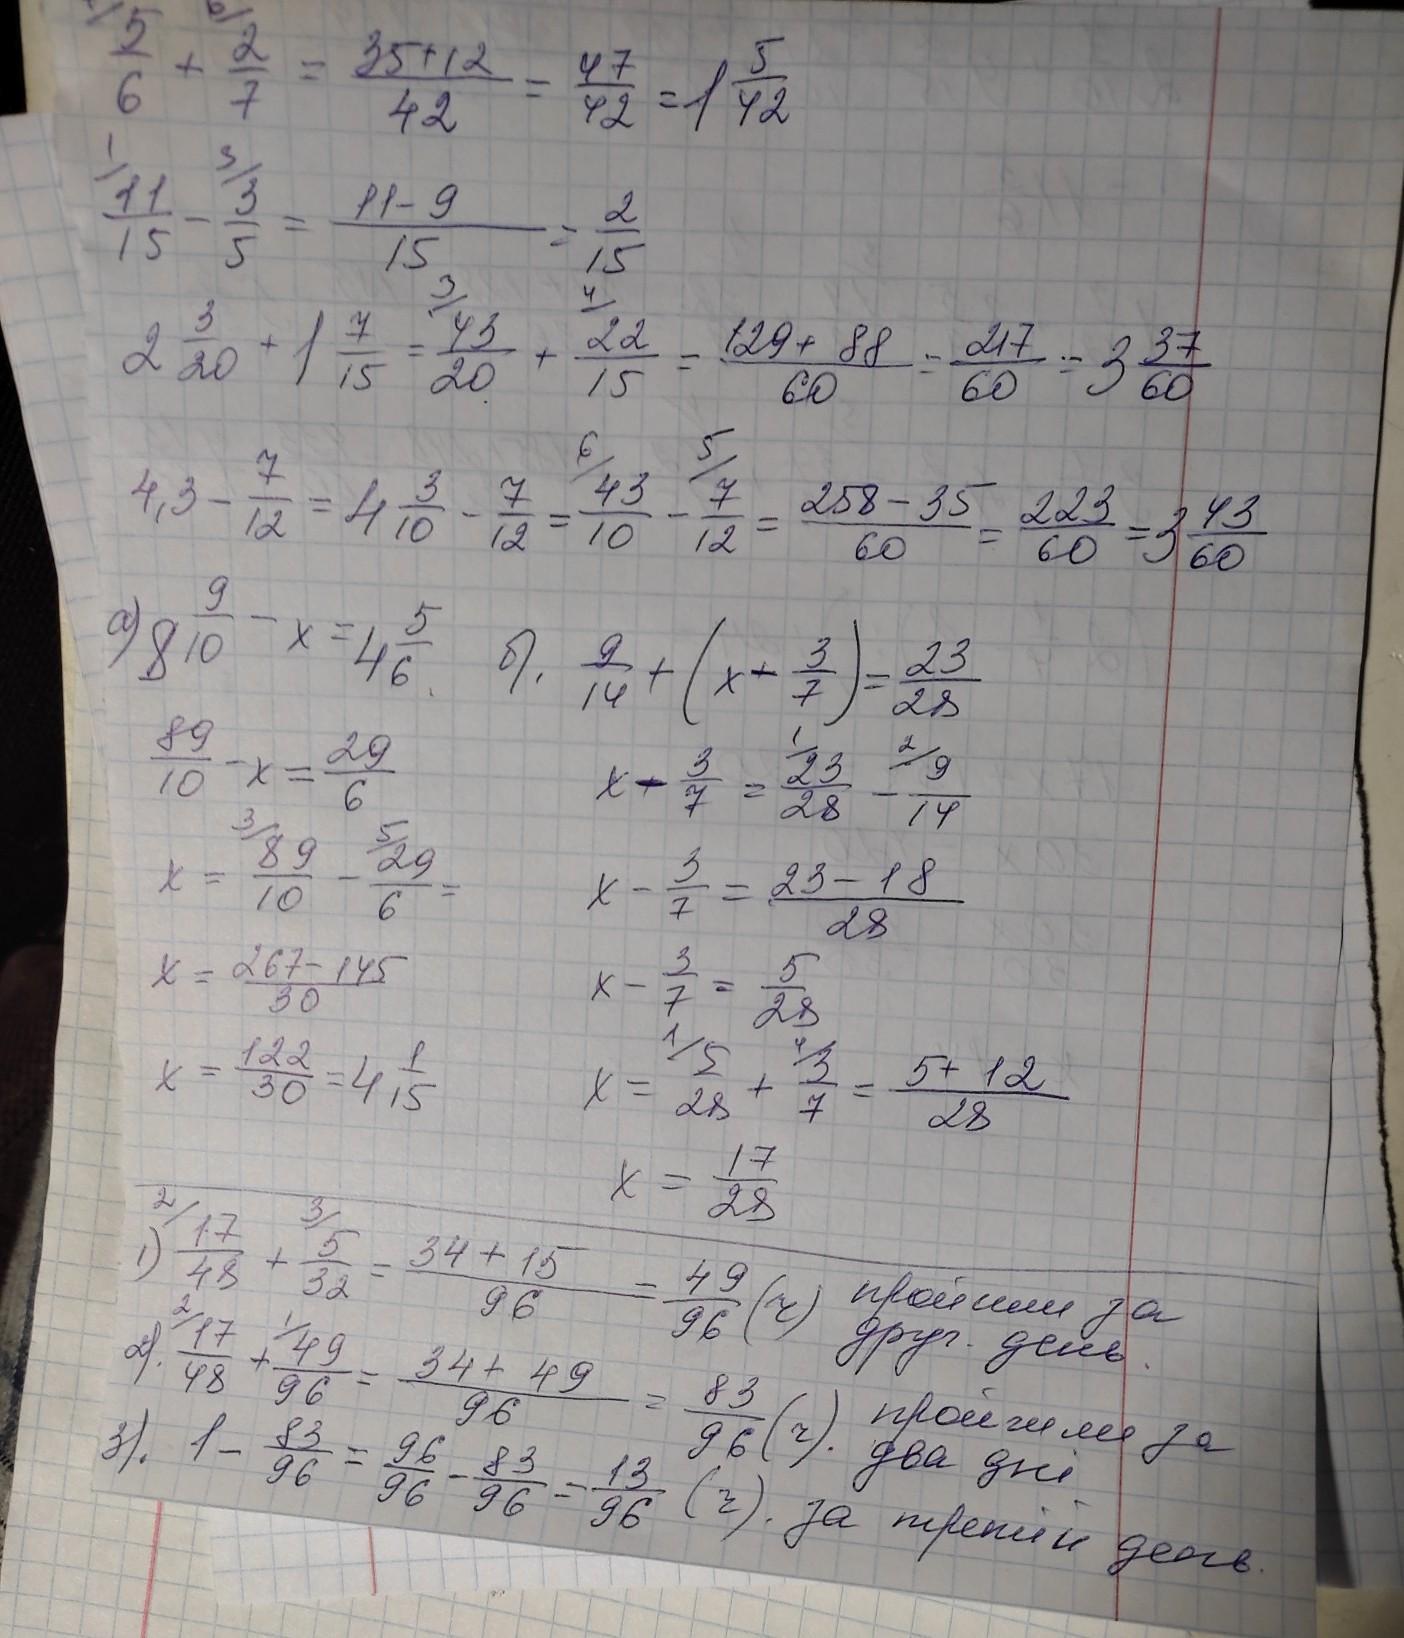 7/ 5/6 + 6/ 2/7 = (35+12)/42 = 47/42 = 1 5/42
1/ 11/15 - 3/ 3/5 = (11-9)/15 = 2/15
2 3/20 + 1 7/15 = 3/ 43/20 + 4/ 22/15 = (129+88)/60 = 217/60 = 3 37/60
4,3 - 7/12 = 4 3/10 - 7/12 = 6/ 43/10 - 5/ 7/12 = (258-35)/60 = 223/60 = 3 43/60
а) 8 9/10 - x = 4 5/6
89/10 - x = 29/6
x = 3/ 89/10 - 5/ 29/6 =
x = (267-145)/30
x = 122/30 = 4 1/15
б). 9/14 + (x - 3/7) = 23/28
x - 3/7 = 1/ 23/28 - 2/ 9/14
x - 3/7 = (23-18)/28
x - 3/7 = 5/28
x = 1/ 5/28 + 4/ 3/7 = (5+12)/28
x = 17/28
1) 2/ 17/48 + 3/ 5/32 = (34+15)/96 = 49/96 (ч) пройшли за
друг. день.
2). 2/ 17/48 + 1/ 49/96 = (34+49)/96 = 83/96 (ч). пройшли за
два дні
3). 1 - 83/96 = 96/96 - 83/96 = 13/96 (ч). за третій день.